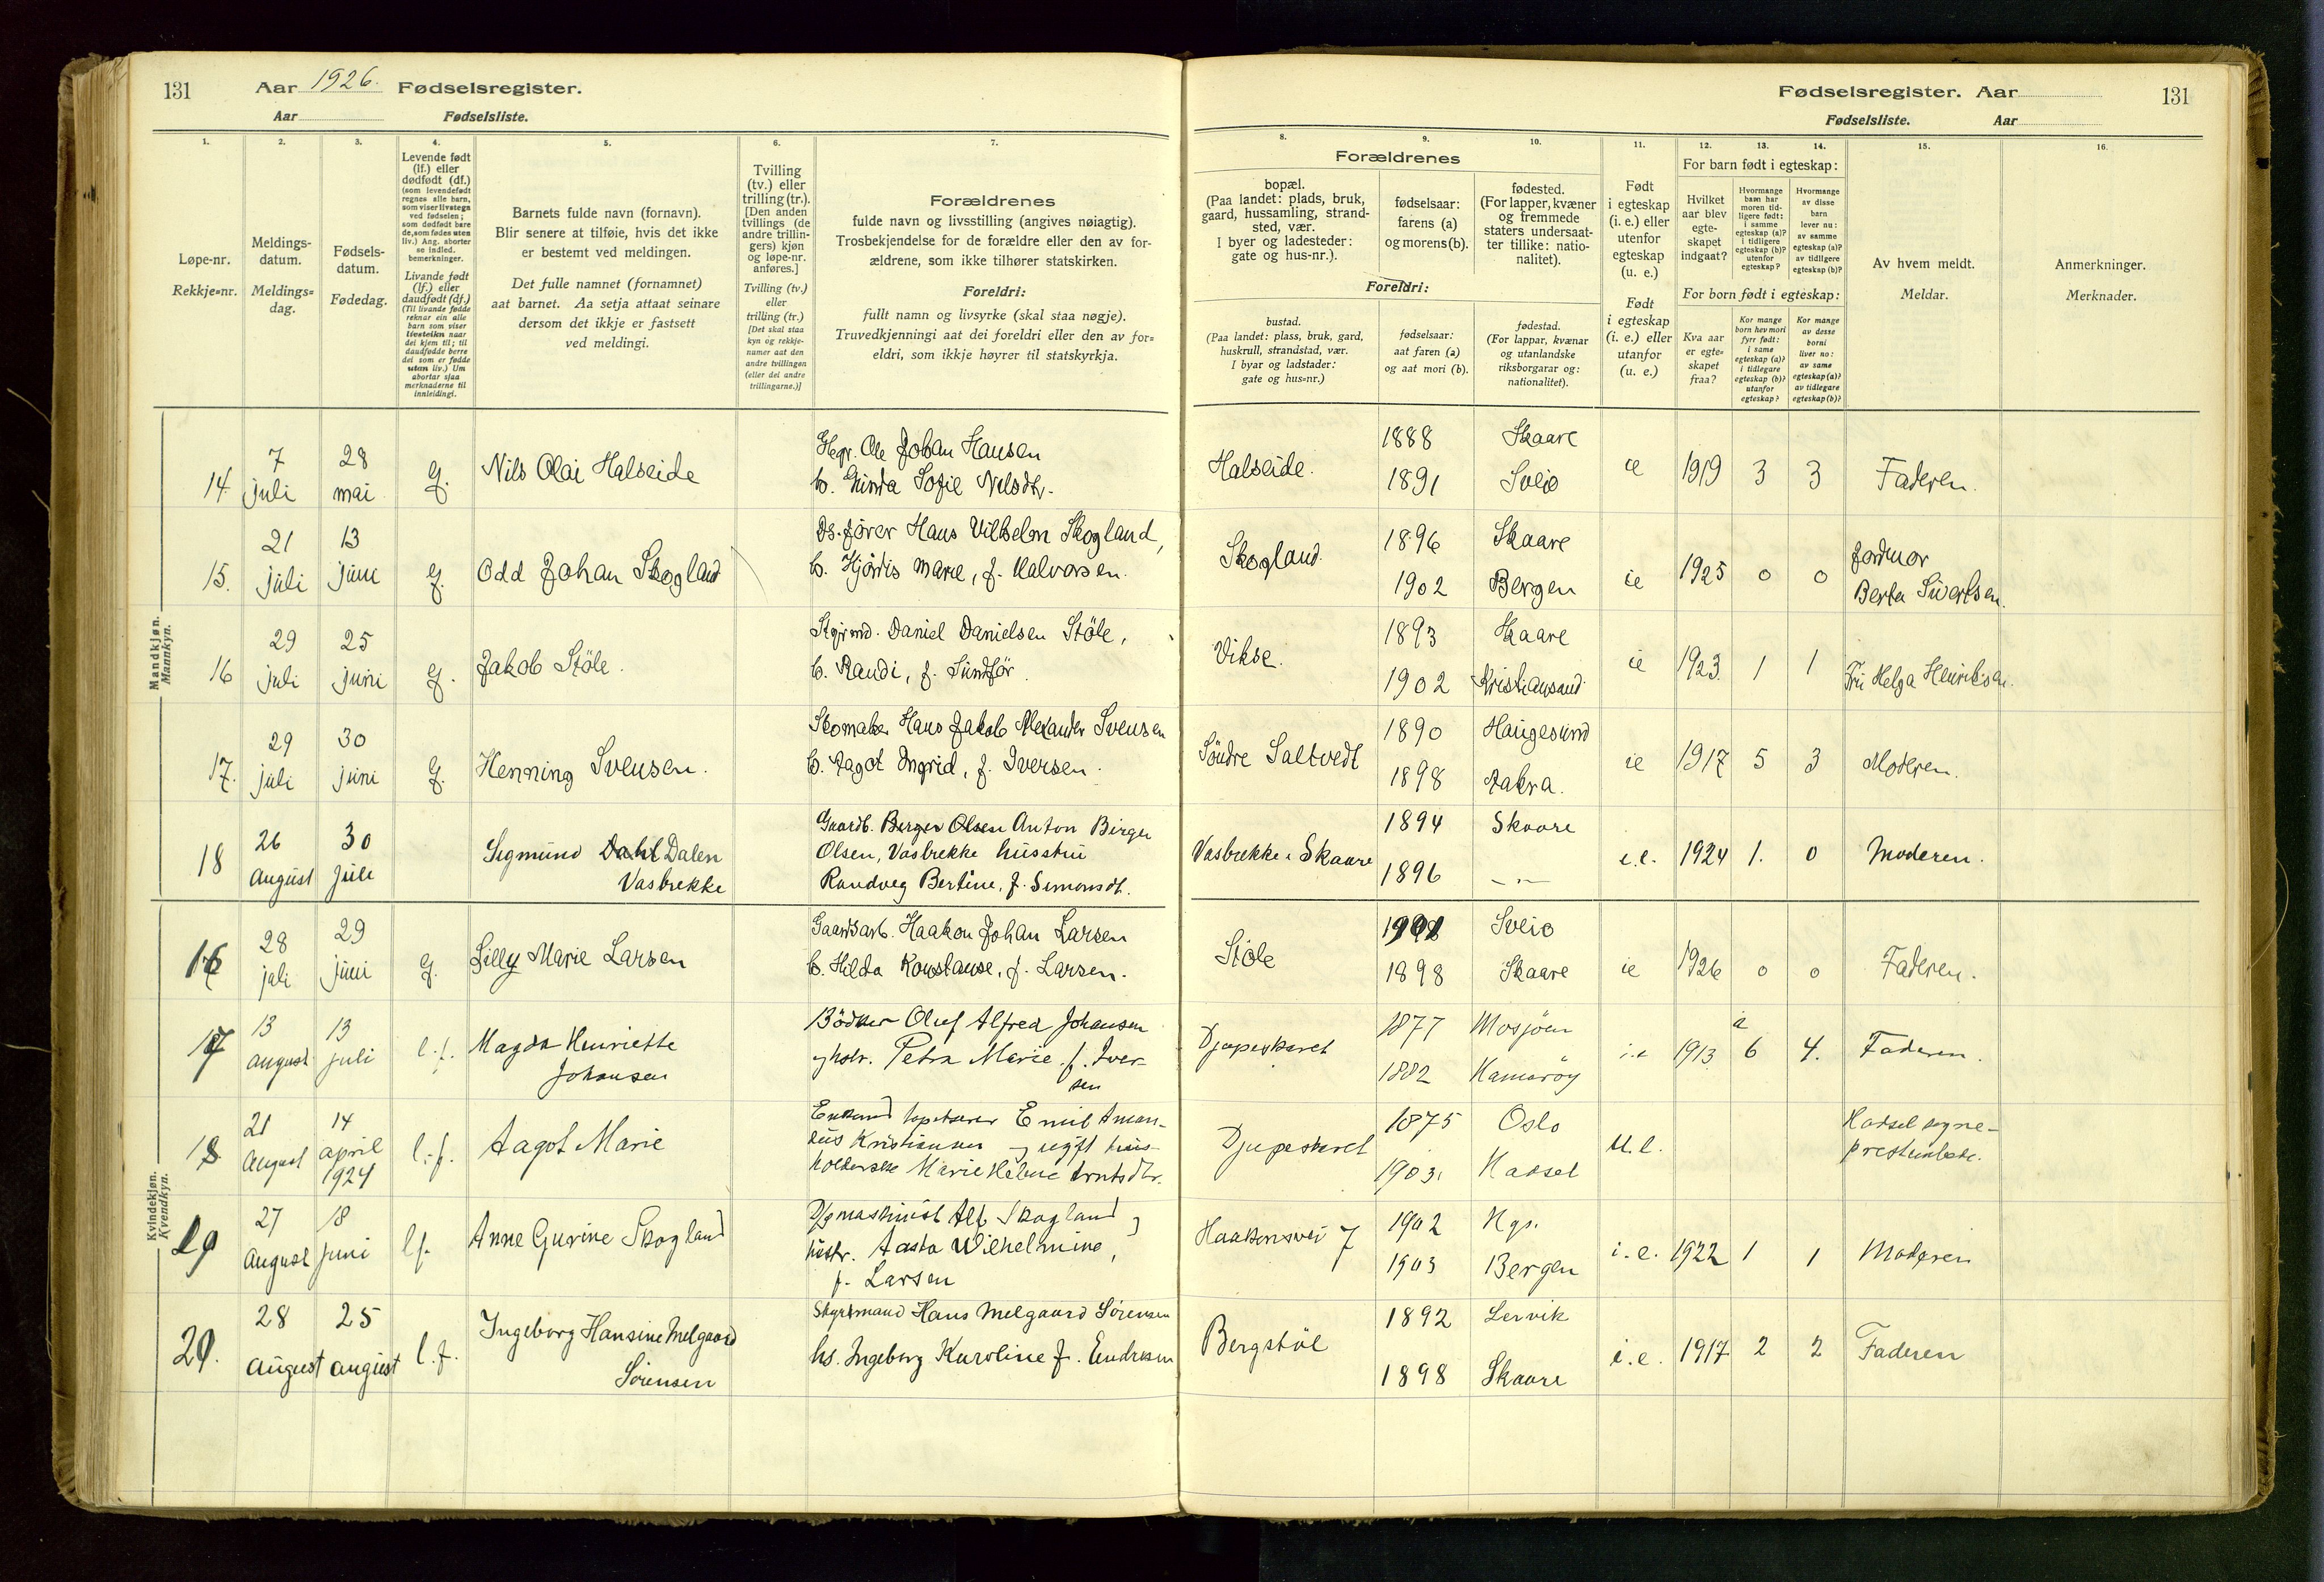 131 Aar 1926. Fødselsregister.
Aar Fødselsliste.
Fødselsregister. Aar 131
Fødselsliste. Aar
1.
Løpe-nr.
Rekkje=nr.
2.
Meldings-
datum.
Meldings=
dag.
3.
Fødsels-
datum.
Fødedag.
4.
Levende født
(lf.) eller
dødfødt (df.)
(som levendefødt
regnes alle barn,
som viser livstegn
ved fødselen;
som dødfødt bare
de, som fødes uten
liv.) Ang. aborter
se indled.
bemerkninger.
Livande født
(lf.) eller
daudfødt (df.)
(Til livande fødde
reknar ein alle
barn som viser
livsteikn naar
dei kjem til; til
daudfødde berre
dei som er fødde
utan liv.) Um
abortar sjaa
merknaderne til
innleidingi.
5.
Barnets fulde navn (fornavn).
Blir senere at tilføie, hvis det ikke
er bestemt ved meldingen.
Det fulle namnet (fornamnet)
aat barnet. Aa setja attaat seinare
dersom det ikkje er fastsett
ved meldingi.
6.
Tvilling
(tv.) eller
trilling (tr.).
[Den anden
tvillings (de
andre trillin-
gers) kjøn
og løpe-nr.
anføres.]
Tvilling (tv.)
eller
trilling (tr.)
[Det skal staa
kyn og rekkje-
numer aat den
andre tvillingen
(eller dei andre
trillingarne.)]
7.
Forældrenes
fulde navn og livsstilling (angives nøiagtig).
Trosbekjendelse for de forældre eller den av for-
ældrene, som ikke tilhører statskirken.
Foreldri:
fullt namn og livsyrke (skal staa nøgje).
Truvedkjenningi aat dei foreldri eller den av for=
eldri, som ikkje høyrer til statskyrkja.
8.
Forældrenes
bopæl.
(Paa landet: plads, bruk,
gaard, hussamling, strand-
sted, vær.
I byer og ladesteder:
gate og hus-nr.).
Foreldri:
bustad.
(Paa landet: plass, bruk, gard,
huskrull, strandstad, vær.
I byar og ladstader:
gate og hus=nr.)
9.
fødselsaar:
farens (a)
og morens (b).
fødselsaar:
aat faren (a)
og aat mori (b).
10.
fødested.
(For lapper, kvæner
og fremmede
staters undersaat-
ter tillike: natio-
nalitet).
fødestad.
(For lappar, kvænar
og utanlandske
riksborgarar og:
nationalitet).
11.
Født
i egteskap
(i. e.) eller
utenfor
egteskap
(u. e.)
Født
i egteskap
(i. e.) eller
utanfor
(u. e.)
12. 13. 14.
For barn født i egteskap:
Hvilket
aar blev
egte-
skapet
indgaat?
Hvormange
barn har
moren tid-
ligere født:
i samme
egteskap (a)?
i tidligere
egteskap (b)?
utenfor
egteskap?
Hvormange
av disse
barn
lever nu:
av samme
egteskap (a)?
av tidligere
egteskap (b)?
For born født i egteskap:
Kva aar
er egte=
skapet
fraa?
Kor mange
born hev mori
fyrr født:
i same
egteskap (a)?
i tidlegare
egteskap (b)?
utanfor
egteskap?
Kor mange
av desse
borni
liver no:
av same
egteskap (a)?
av tidlegare
egteskap (b)?
15.
Av hvem meldt.
Meldar.
16.
Anmerkninger.
Merknader.
Mandkjøn.
Mannkyn.
14. 7 juli 28 mai g. Nils Olai Halseide
Ole Johan Hansen
Sofie Nilsdtr.
Halseide. 1888 Skaare
1891 Sveio
ie 1919 3 3 Faderen.
15. 21 juli 13 juni g. Odd Johan Skogland
Ds.fører Hans Vilhelm Skogland,
h. Hjördis Marie, f. Halvorsen.
Skogland. 1896 Skaare
1902 Bergen
ie 1925 0 0 Jordmor
Berta Sivertsen.
16 29 juli 25 juni g. Jakob Stöle.
Daniel Danielsen Stöle,
h. Randi, f. Sundför.
Vikse. 1893 Skaare
1902 Kristiansund
ie 1923 1 1 Fru Helga Henriksen.
17. 29 juli 30 juni g. Henning Svensen.
Skomaker Hans Jakob Alexander Svensen
h. Aagot Ingrid, f. Iversen.
Söndre Saltvedt 1890 Haugesund
1898 Aakra.
ie 1917 5 3 Moderen.
18 26 August 30 Juli Sigmund Dahl Dalen
Vasbrekke
Gaardb. Berger Olsen Anton Birger
Olsen, Vasbrekke hüsstrü
Randveg Bertine, f. Simonsdt.
Vasbrekke i Skaare 1894 Skaare
1896 — " —
i.e. 1924 1. 0 Moderen.
Kvindekjøn.
Kvendkyn.
16 28 juli 29 juni g. Lilly Marie Larsen
Gaardarb. Haakon Johan Larsen
h. Hilda Konstanse, f. Larsen.
Stöle Sveio
1898 Skaare
ie 1926 0 0 Faderen.
17 13 August 13 juli l.f. Magda Henriette
Johansen
Bödker Oluf Alfred Johansen
og hstr. Petra Marie f. Iver-
sen
Djupeskaret 1877 Mosjöen
1882 Hamaröy
i.e 1913 a 6 4. Faderen.
18 21 August 14 april 1924 l.f. Aagot Marie
Enkemand Emil Aman-
dus Kristiansen og ugift hüs-
holderske Marie Helene Arntsdtr.
Djupeskaret 1875 Oslo
1903. Hadsel
u.e. Hadsel sogne-
prestembede.
19 27 August 18 juni l.f. Anne Gurine Skogland
D/s maskinist Alf Skogland og
hustr. Aasta Wilhelmine,
f. Larsen
Haakonsvei 7 1902 Hgs.
1903 Bergen
i.e. 1922 1 1 Moderen
20. 28 August 25 August l.f. Ingeborg Hansine Melgaard
Sörensen
Styrkmand Hans Melgaard Sörensen
hs. Ingeborg Karoline f. Endresen
Bergstöl 1892 Lervik
1898 Skaare
i.e. 1917 2 2 Faderen